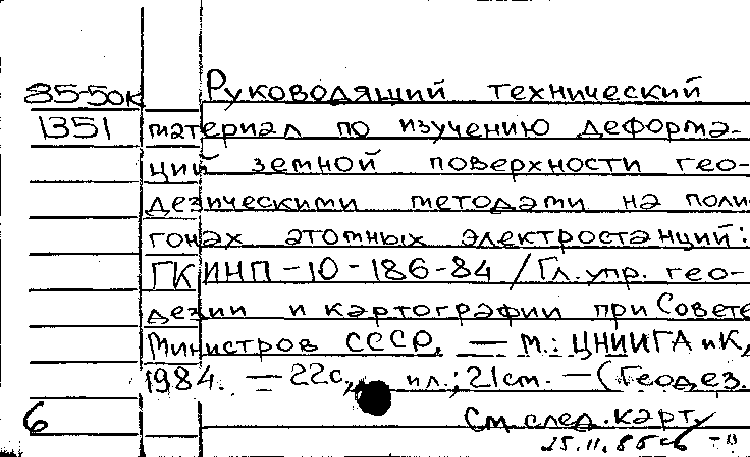 85-50к Руководящий технический
1351 материал по изучению деформа-
ций земной поверхности гео-
дезическими методами на поли-
гонах атомных электростанций:
ГКИНП-10-186-84 / Гл. упр. гео-
дезии и картографии при Совете
Министров СССР, — М.: ЦНИИГАиК,
1984. — 22с., ил.; 21см. — (Геодез.
6 См. след. карт.
25.11.85